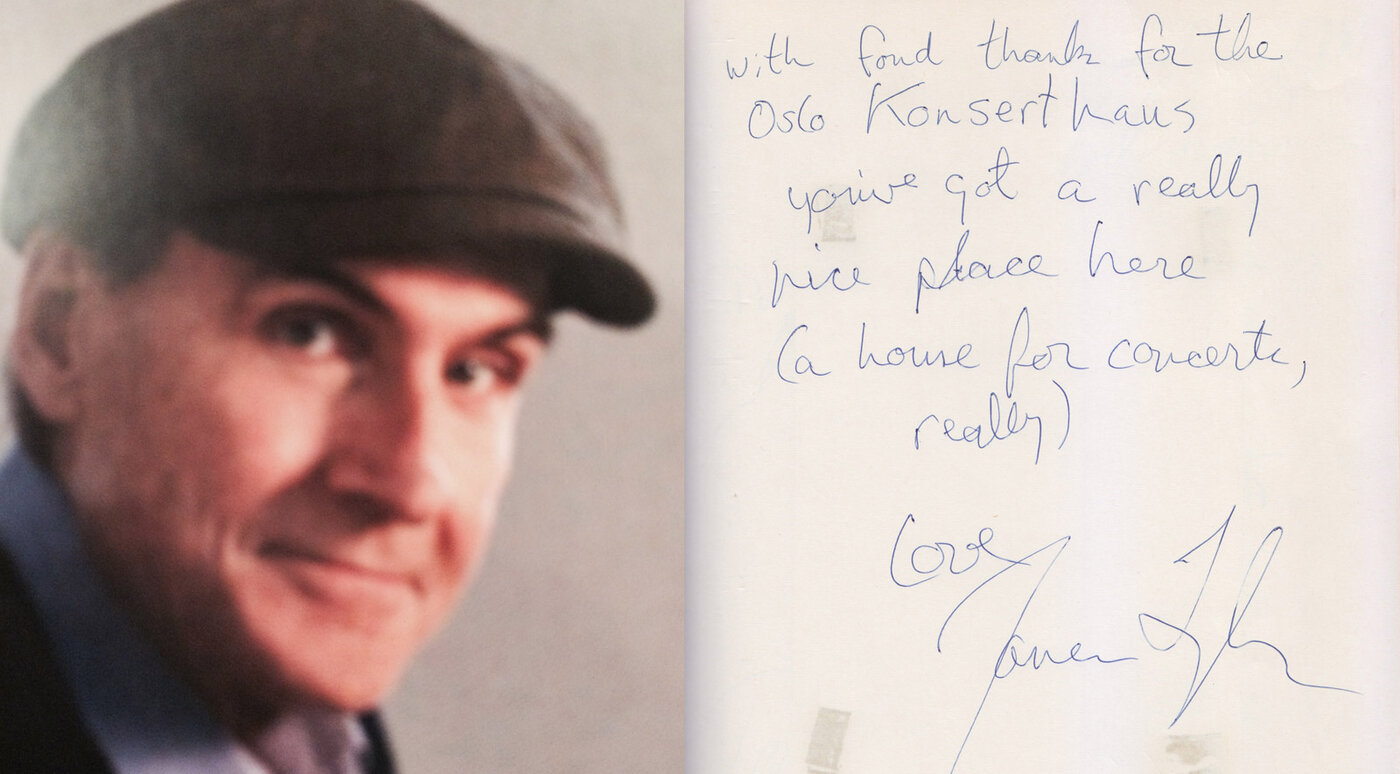 with fond thanks for the
Oslo Konserthaus
you've got a really
nice place here
(a house for concerts,
really)
Love
James Taylor